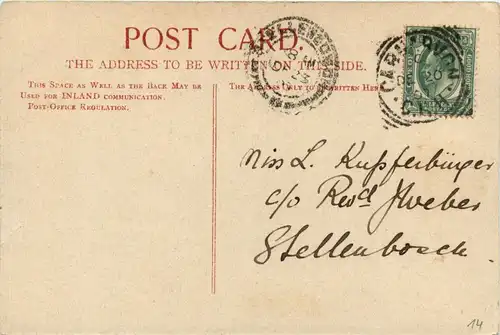 POST CARD.
THE ADDRESS TO BE WRITTEN ON THIS SIDE.
THIS SPACE AS WELL AS THE BACK MAY BE
USED FOR INLAND COMMUNICATION.
POST-OFFICE REGULATION.
THE ADDRESS ONLY TO BE WRITTEN HERE
CARNARVON
Miss L. Kupferbürger
c/o Revd J Weber
Stellenbosch.
14